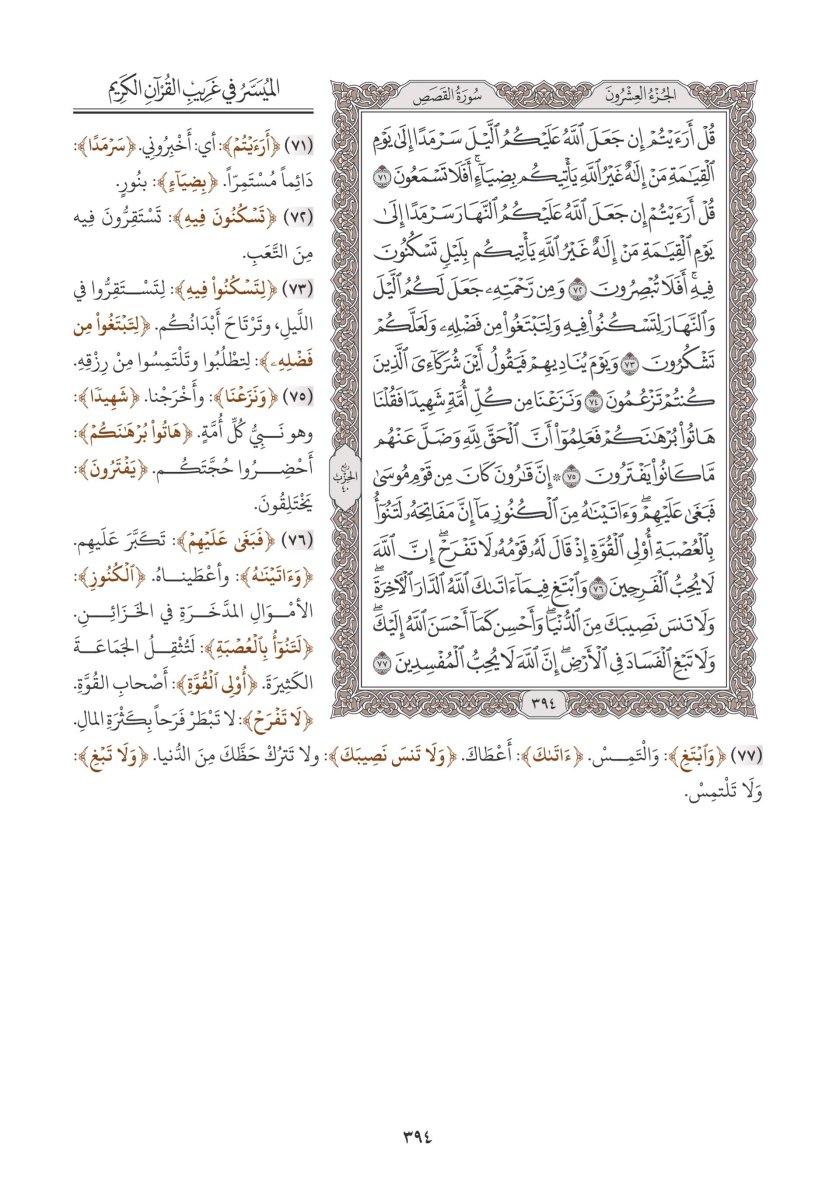 المُيَسَّرُ في غَرِيبِ القُرْآنِ الكَرِيمِ
الجُزْءُ العِشْرُونَ
سُورَةُ القَصَصِ
قُلْ أَرَءَيْتُمْ إِن جَعَلَ ٱللَّهُ عَلَيْكُمُ ٱلَّيْلَ سَرْمَدًا إِلَىٰ يَوْمِ
ٱلْقِيَٰمَةِ مَنْ إِلَٰهٌ غَيْرُ ٱللَّهِ يَأْتِيكُم بِضِيَآءٍ ۖ أَفَلَا تَسْمَعُونَ ٧١
قُلْ أَرَءَيْتُمْ إِن جَعَلَ ٱللَّهُ عَلَيْكُمُ ٱلنَّهَارَ سَرْمَدًا إِلَىٰ
يَوْمِ ٱلْقِيَٰمَةِ مَنْ إِلَٰهٌ غَيْرُ ٱللَّهِ يَأْتِيكُم بِلَيْلٍ تَسْكُنُونَ
فِيهِ ۚ أَفَلَا تُبْصِرُونَ ٧٢ وَمِن رَّحْمَتِهِۦ جَعَلَ لَكُمُ ٱلَّيْلَ
وَٱلنَّهَارَ لِتَسْكُنُوا۟ فِيهِ وَلِتَبْتَغُوا۟ مِن فَضْلِهِۦ وَلَعَلَّكُمْ
تَشْكُرُونَ ٧٣ وَيَوْمَ يُنَادِيهِمْ فَيَقُولُ أَيْنَ شُرَكَآءِىَ ٱلَّذِينَ
كُنتُمْ تَزْعُمُونَ ٧٤ وَنَزَعْنَا مِن كُلِّ أُمَّةٍ شَهِيدًا فَقُلْنَا
هَاتُوا۟ بُرْهَٰنَكُمْ فَعَلِمُوٓا۟ أَنَّ ٱلْحَقَّ لِلَّهِ وَضَلَّ عَنْهُم
مَّا كَانُوا۟ يَفْتَرُونَ ٧٥ ۞ إِنَّ قَٰرُونَ كَانَ مِن قَوْمِ مُوسَىٰ
فَبَغَىٰ عَلَيْهِمْ ۖ وَءَاتَيْنَٰهُ مِنَ ٱلْكُنُوزِ مَآ إِنَّ مَفَاتِحَهُۥ لَتَنُوٓأُ
بِٱلْعُصْبَةِ أُو۟لِى ٱلْقُوَّةِ إِذْ قَالَ لَهُۥ قَوْمُهُۥ لَا تَفْرَحْ ۖ إِنَّ ٱللَّهَ
لَا يُحِبُّ ٱلْفَرِحِينَ ٧٦ وَٱبْتَغِ فِيمَآ ءَاتَىٰكَ ٱللَّهُ ٱلدَّارَ ٱلْءَاخِرَةَ ۖ
وَلَا تَنسَ نَصِيبَكَ مِنَ ٱلدُّنْيَا ۖ وَأَحْسِن كَمَآ أَحْسَنَ ٱللَّهُ إِلَيْكَ ۖ
وَلَا تَبْغِ ٱلْفَسَادَ فِى ٱلْأَرْضِ ۖ إِنَّ ٱللَّهَ لَا يُحِبُّ ٱلْمُفْسِدِينَ ٧٧
رُبْعُ
الحِزْب
٤٠
٣٩٤
(٧١) ﴿أَرَءَيْتُمْ﴾: أي: أَخْبِرُونِي. ﴿سَرْمَدًا﴾:
دَائِماً مُسْتَمِرّاً. ﴿بِضِيَآءٍ﴾: بنُورٍ.
(٧٢) ﴿تَسْكُنُونَ فِيهِ﴾: تَسْتَقِرُّونَ فيه
مِنَ التَّعَبِ.
(٧٣) ﴿لِتَسْكُنُوا۟ فِيهِ﴾: لِتَسْتَقِرُّوا في
اللَّيلِ، وتَرْتَاحَ أَبْدَانُكُم. ﴿لِتَبْتَغُوا۟ مِن
فَضْلِهِۦ﴾: لِتطْلُبُوا وتَلْتَمِسُوا مِنْ رِزْقِهِ.
(٧٥) ﴿وَنَزَعْنَا﴾: وأَخْرَجْنا. ﴿شَهِيدًا﴾:
وهو نَبِيُّ كُلِّ أُمَّةٍ. ﴿هَاتُوا۟ بُرْهَٰنَكُمْ﴾:
أَحْضِرُوا حُجَّتَكُم. ﴿يَفْتَرُونَ﴾:
يَخْتَلِقُونَ.
(٧٦) ﴿فَبَغَىٰ عَلَيْهِمْ﴾: تَكَبَّرَ عَلَيهِم.
﴿وَءَاتَيْنَٰهُ﴾: وأَعْطَيناهُ. ﴿ٱلْكُنُوزِ﴾:
الأمْوَالِ المدَّخَرَةِ في الخَزَائِنِ.
﴿لَتَنُوٓأُ بِٱلْعُصْبَةِ﴾: لَتُثْقِلُ الجَمَاعَةَ
الكَثِيرَةَ. ﴿أُو۟لِى ٱلْقُوَّةِ﴾: أَصْحابِ القُوَّةِ.
﴿لَا تَفْرَحْ﴾: لا تَبْطَرْ فَرَحاً بِكَثْرَةِ المالِ.
(٧٧) ﴿وَٱبْتَغِ﴾: وَالْتَمِسْ. ﴿ءَاتَىٰكَ﴾: أَعْطَاكَ. ﴿وَلَا تَنسَ نَصِيبَكَ﴾: ولا تَتركْ حَظَّكَ مِنَ الدُّنيا. ﴿وَلَا تَبْغِ﴾:
وَلَا تَلْتمِسْ.
٣٩٤